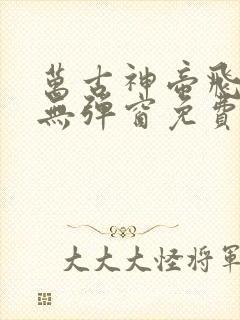 萬古神帝飛
無彈窗免費
大大大怪將軍